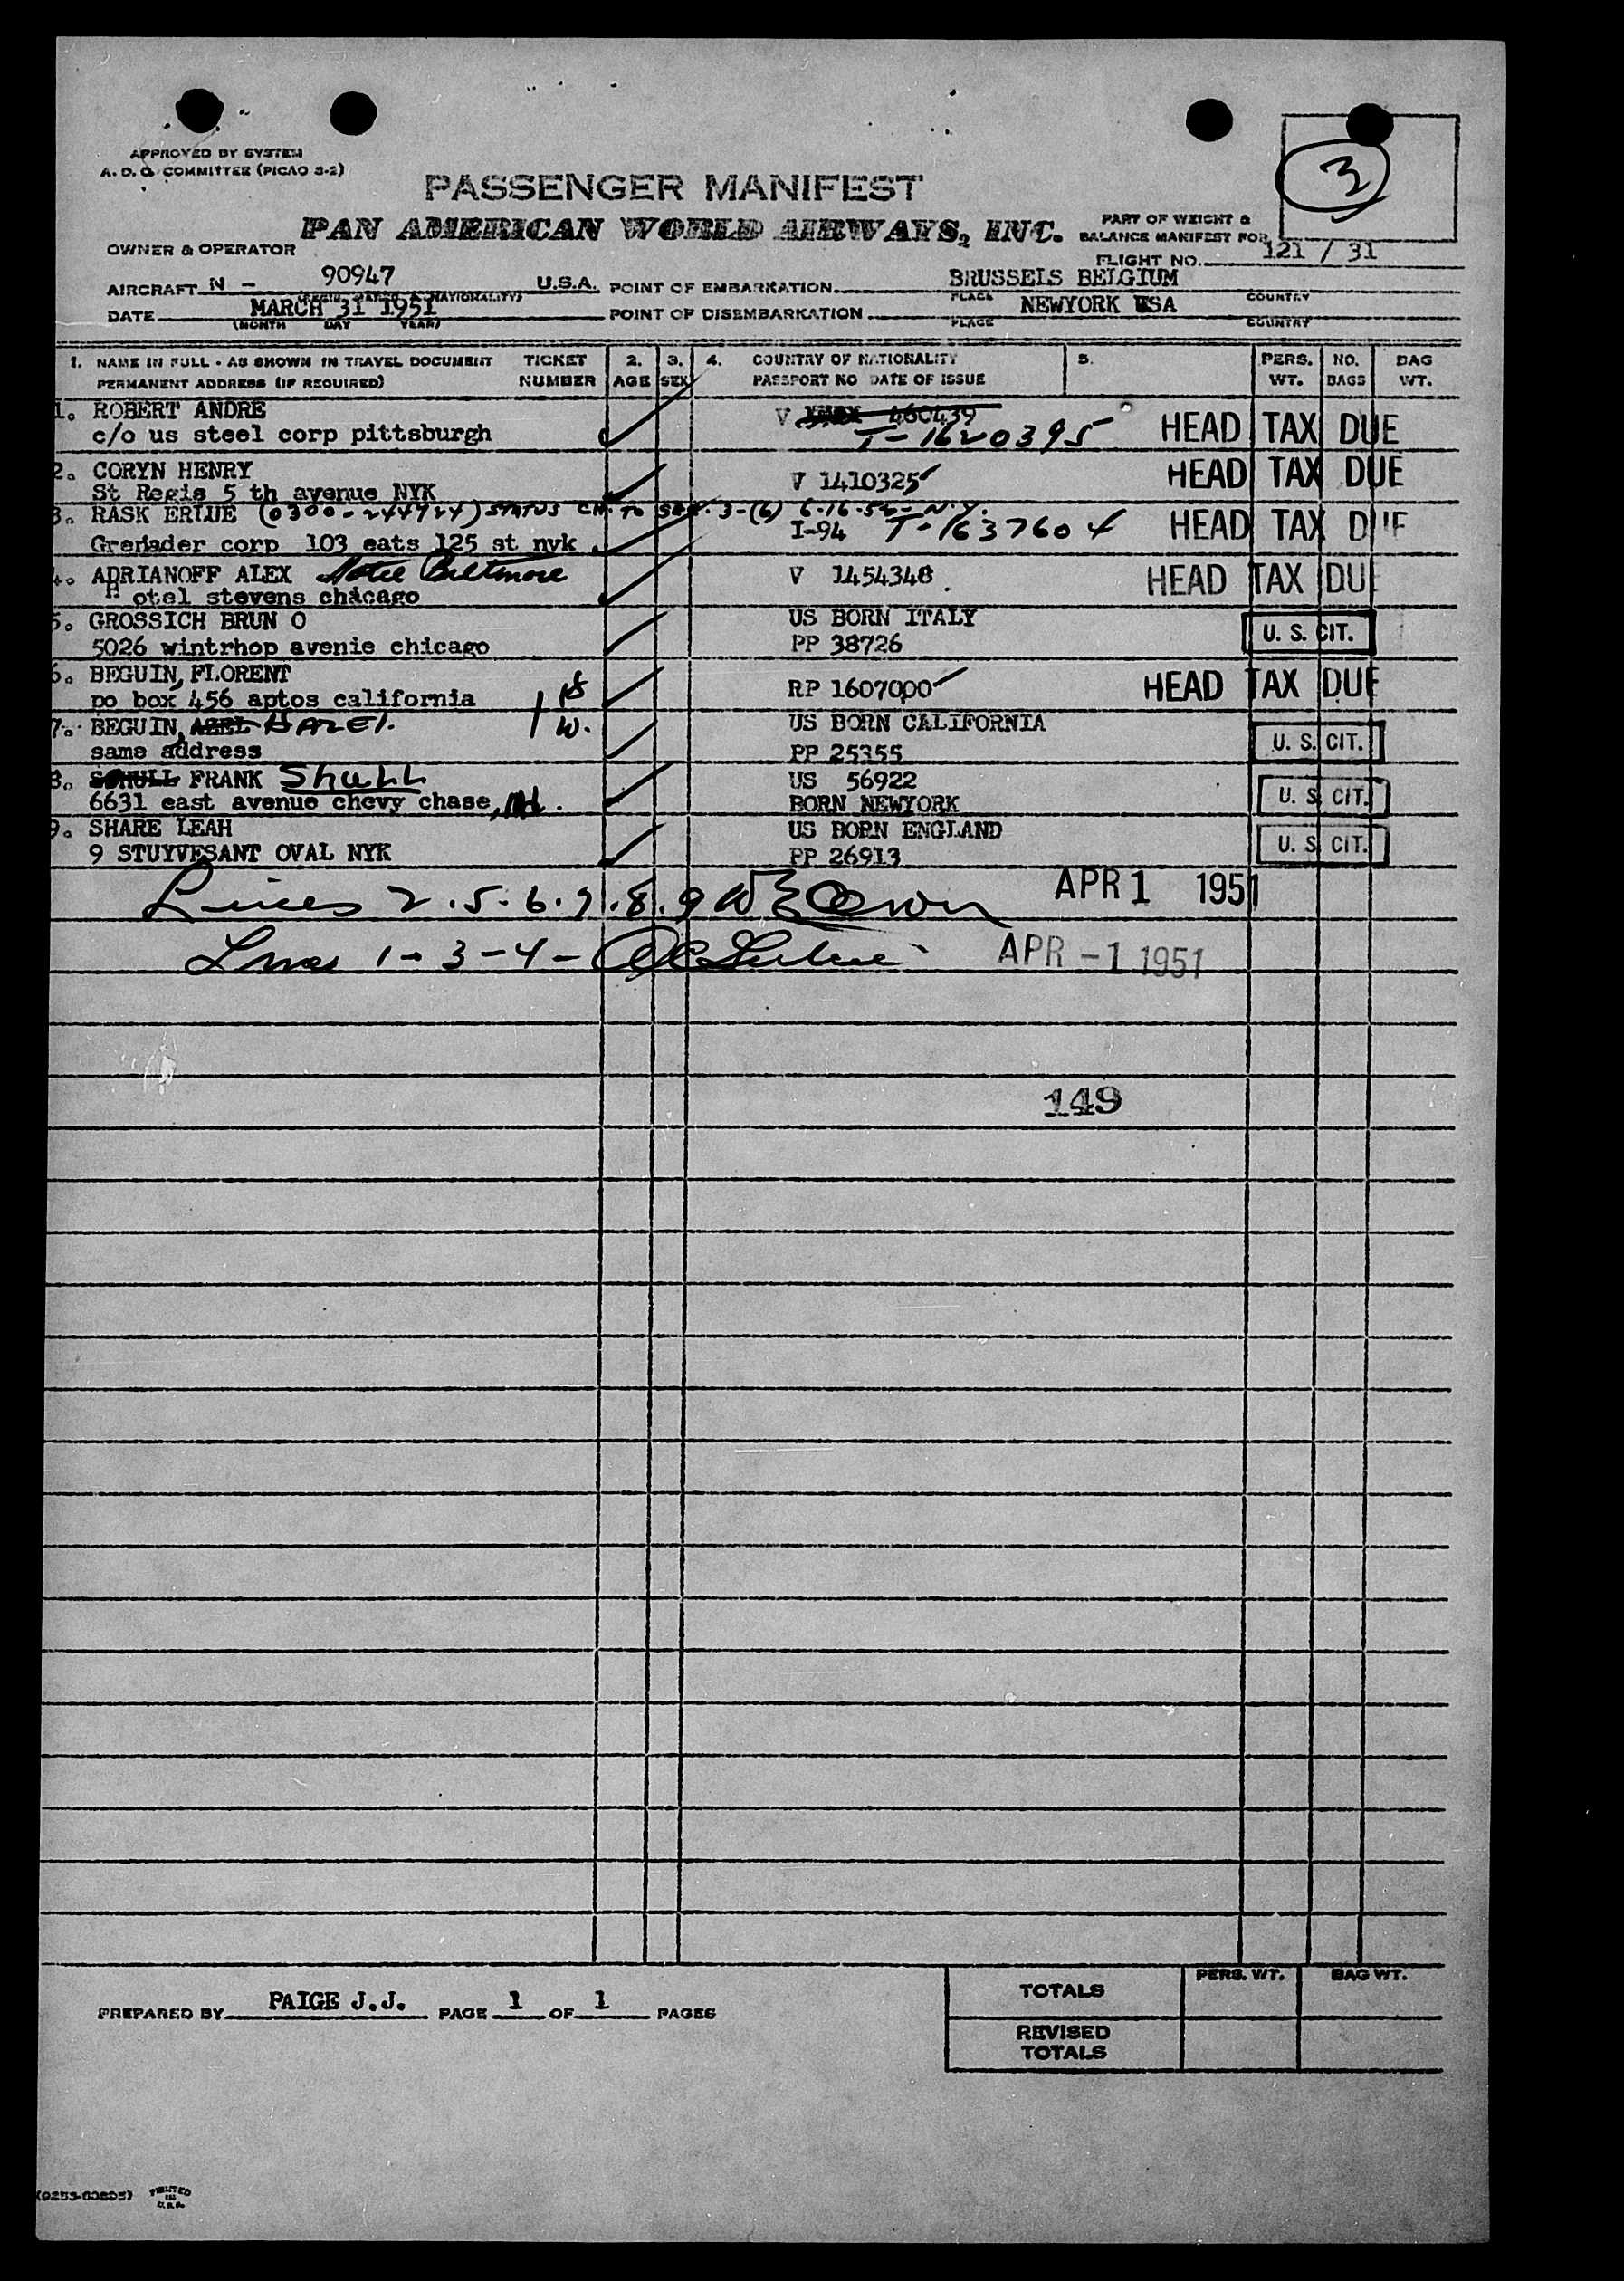 APPROVED BY SYSTEM
A. D. C. COMMITTEE (PICAO 3-2)
3
PASSENGER MANIFEST
PAN AMERICAN WORLD AIRWAYS, INC.
PART OF WEIGHT &
BALANCE MANIFEST FOR
OWNER & OPERATOR
FLIGHT NO. 121 / 31
AIRCRAFT N - 90947 U.S.A. POINT OF EMBARKATION BRUSSELS BELGIUM
PLACE COUNTRY
DATE MARCH 31 1951 POINT OF DISEMBARKATION NEWYORK USA
(MONTH DAY YEAR) PLACE COUNTRY
1. NAME IN FULL - AS SHOWN IN TRAVEL DOCUMENT TICKET 2. 3. 4. COUNTRY OF NATIONALITY 5. PERS. NO. BAG
PERMANENT ADDRESS (IF REQUIRED) NUMBER AGE SEX PASSPORT NO DATE OF ISSUE WT. BAGS WT.
1. ROBERT ANDRE V 460439
c/o us steel corp pittsburgh T-1620395 HEAD TAX DUE
2. CORYN HENRY HEAD TAX DUE
St Regis 5 th avenue NYK V 1410325
3. RASK ERLUE (0300-244924) STATUS CH. TO SEC. 3-(6) 6-16-55- N.Y.
Grenader corp 103 eats 125 st nyk I-94 T-1637604 HEAD TAX DUE
4. ADRIANOFF ALEX Hotel Biltmore V 1454348 HEAD TAX DUE
H otel stevens chicago
5. GROSSICH BRUN O US BORN ITALY
5026 wintrhop avenie chicago PP 38726 U. S. CIT.
6. BEGUIN, FLORENT
po box 456 aptos california RP 1607000 HEAD TAX DUE
7. BEGUIN, HAZEL. W. US BORN CALIFORNIA
same address PP 25355 U. S. CIT.
8. SCHULL FRANK Shull US 56922
6631 east avenue chevy chase, Md. BORN NEWYORK U. S. CIT.
9. SHARE LEAH US BORN ENGLAND
9 STUYVESANT OVAL NYK PP 26913 U. S. CIT.
Lines 2.5.6.7.8.9 APR 1 1951
Lines 1-3-4- APR -1 1951
149
TOTALS PERS. WT. BAG WT.
PREPARED BY PAIGE J.J. PAGE 1 OF 1 PAGES
REVISED
TOTALS
PRINTED
IN
U.S.A.